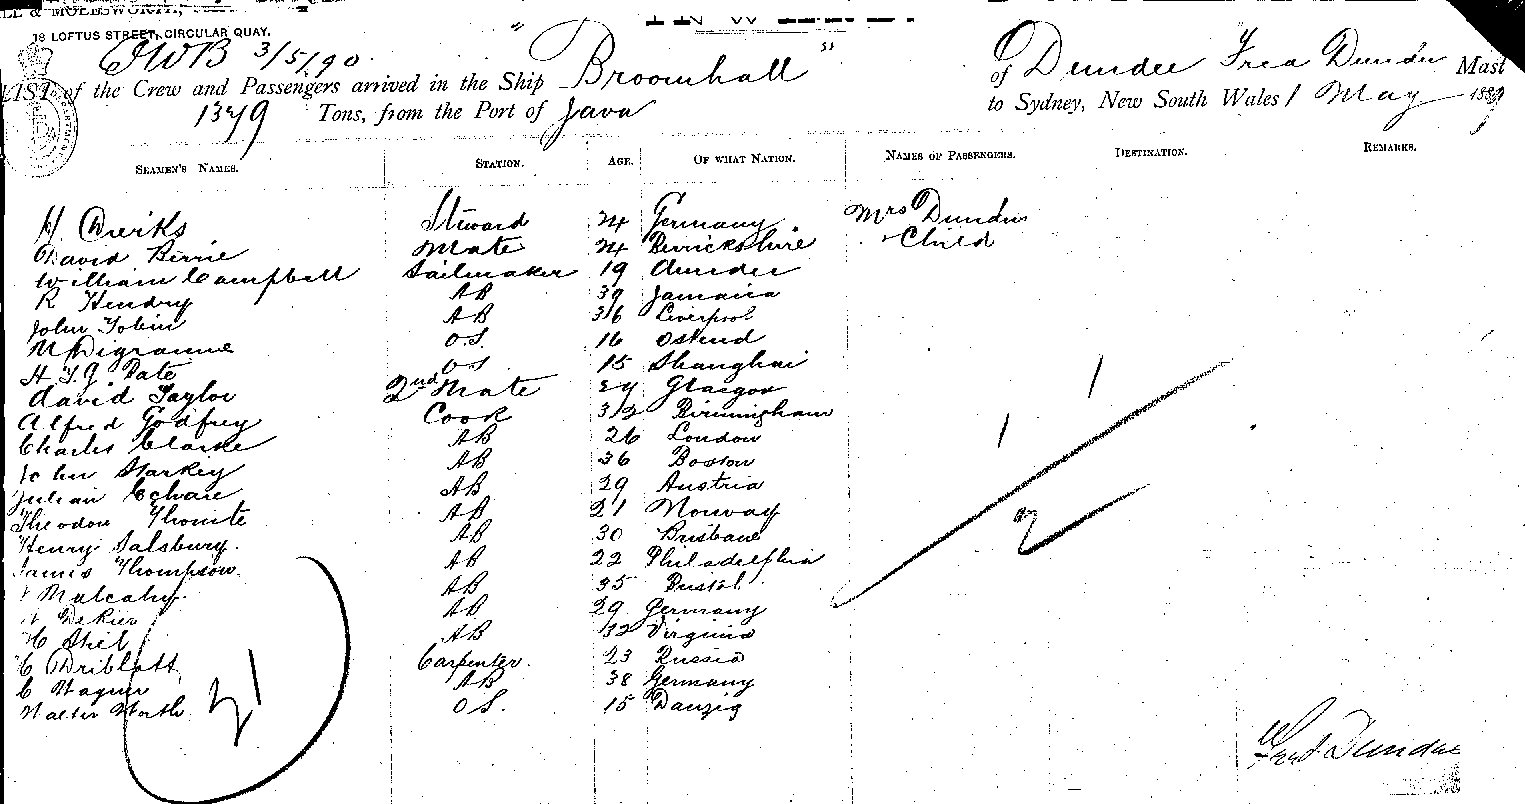 LL & MOLESWORTH,
18 LOFTUS STREET, CIRCULAR QUAY.
JWB 3/5/90.
LIST of the Crew and Passengers arrived in the Ship "Broomhall" of Dundee Fred Dundee Mast
1379 Tons, from the Port of Java to Sydney, New South Wales 1 May 1889
SEAMEN'S NAMES. STATION. AGE. OF WHAT NATION. NAMES OF PASSENGERS. DESTINATION. REMARKS.
H Steward 24 Germany Mrs Dundee
David Birrie Mate 24 Berrickshire Child
William Campbell Sailmaker 19 Dundee
R Hendry AB 39 Jamaica
John Tobin AB 36 Liverpool
O.S. 16 Ostend
H.T.G. Pate OS 15 Shanghai
David Taylor 2nd Mate 24 Glasgow
Alfred Godfrey Cook 32 Birmingham
Charles Clarke AB 26 London
John Starkey AB 36 Boston
Julian AB 29 Austria
Theodon Thomte AB 21 Norway
Henry Salsbury. AB 30 Brisbane
James Thompson. AB 22 Philadelphia
Mulcahy. AB 35 Bristol.
AB 29 Germany
H Shel AB 32 Virginia
C Driblatt Carpenter. 23 Russia
C Wagner AB 38 Germany
Walter North O S. 15 Danzig
21
1
1
2
Fred Dundee